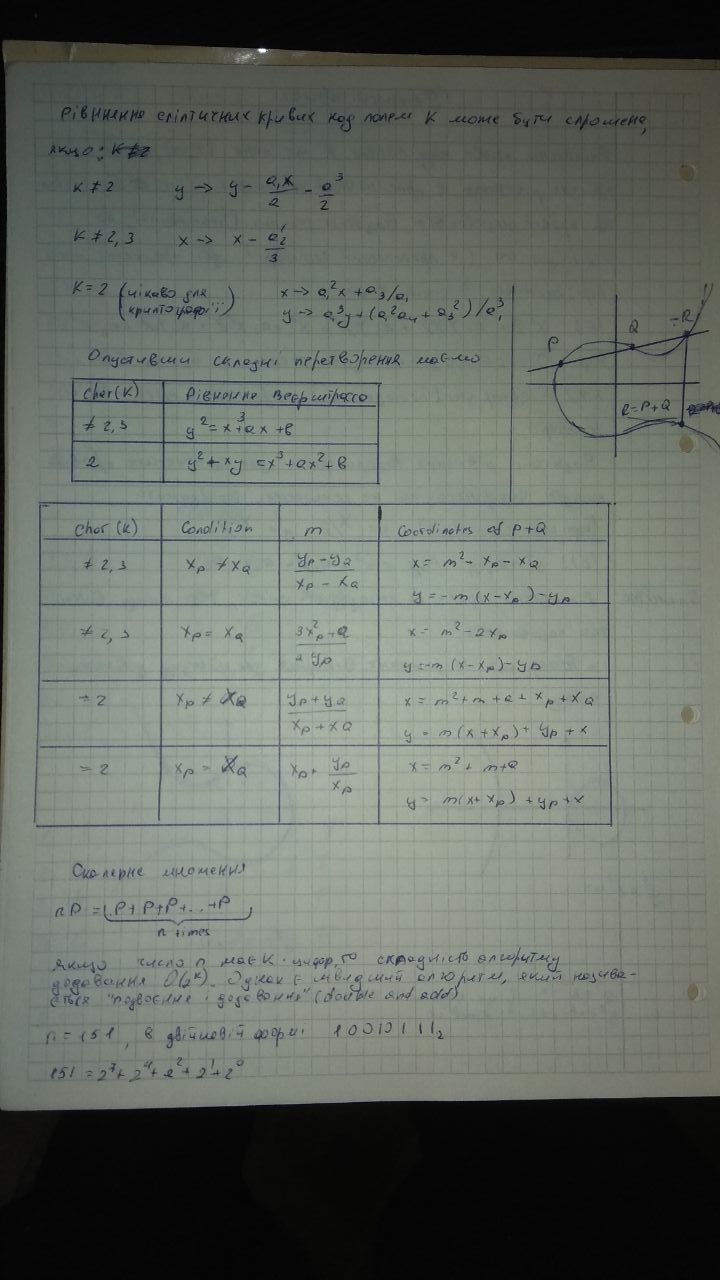 Рівняння еліптичних кривих над полем K може бути спрощена,
якщо:
K ≠ 2 y → y - a₁x/2 - a³/2
K ≠ 2, 3 x → x - a'₂/3
K = 2 (цікаво для криптографії) x → a₁²x + a₃/a₁
y → a₁³y + (a₁²a₄ + a₃²)/a₁³
P Q -R
R=P+Q
Опустивши складні перетворення маємо
Char(K) Рівняння Веєрштрасса
≠ 2, 3 y² = x³+ax+b
2 y²+xy = x³+ax²+b
Char (K) Condition m Coordinates of P+Q
≠ 2, 3 xₚ ≠ x_Q (yₚ-y_Q)/(xₚ-x_Q) x = m² - xₚ - x_Q
y = -m(x-xₚ)-yₚ
≠ 2, 3 xₚ = x_Q (3x²ₚ+a)/(2yₚ) x = m² - 2xₚ
y = -m(x-xₚ)-yₚ
= 2 xₚ ≠ x_Q (yₚ+y_Q)/(xₚ+x_Q) x = m²+m+a+xₚ+x_Q
y = m(x+xₚ)+yₚ+x
= 2 xₚ = x_Q xₚ + yₚ/xₚ x = m²+m+a
y = m(x+xₚ)+yₚ+x
Скалярне множення
nP = P+P+P+...+P
n times
якщо число n має K цифр, то складність алгоритму
додавання O(2ᵏ). Однак є швидший алгоритм, який назива-
ється "подвоєння і додавання" (double and add)
n = 151, в двійковій формі 10010111₂
151 = 2⁷+2⁴+2²+2¹+2⁰